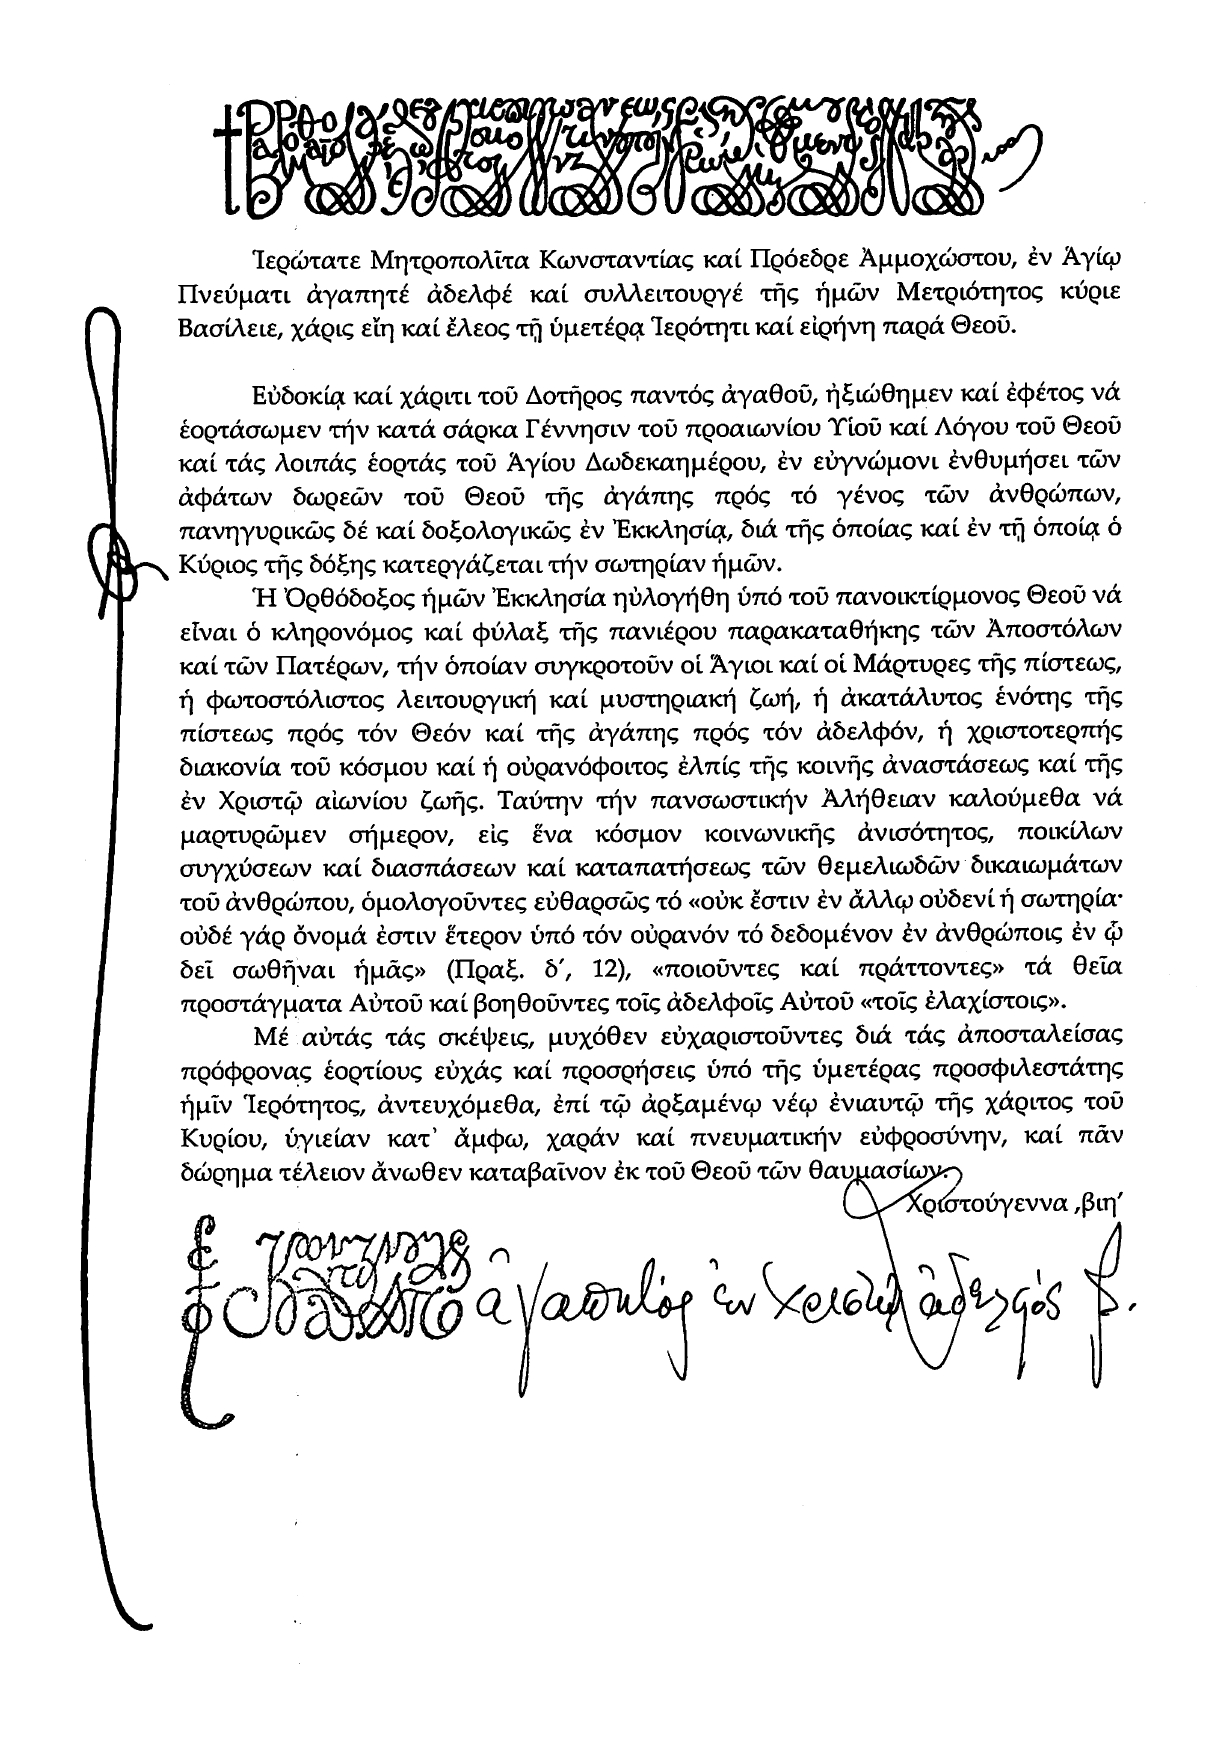 Ἱερώτατε Μητροπολῖτα Κωνσταντίας καί Πρόεδρε Ἀμμοχώστου, ἐν Ἁγίῳ
Πνεύματι ἀγαπητέ ἀδελφέ καί συλλειτουργέ τῆς ἡμῶν Μετριότητος κύριε
Βασίλειε, χάρις εἴη καί ἔλεος τῇ ὑμετέρᾳ Ἱερότητι καί εἰρήνη παρά Θεοῦ.
Εὐδοκίᾳ καί χάριτι τοῦ Δοτῆρος παντός ἀγαθοῦ, ἠξιώθημεν καί ἐφέτος νά
ἑορτάσωμεν τήν κατά σάρκα Γέννησιν τοῦ προαιωνίου Υἱοῦ καί Λόγου τοῦ Θεοῦ
καί τάς λοιπάς ἑορτάς τοῦ Ἁγίου Δωδεκαημέρου, ἐν εὐγνώμονι ἐνθυμήσει τῶν
ἀφάτων δωρεῶν τοῦ Θεοῦ τῆς ἀγάπης πρός τό γένος τῶν ἀνθρώπων,
πανηγυρικῶς δέ καί δοξολογικῶς ἐν Ἐκκλησίᾳ, διά τῆς ὁποίας καί ἐν τῇ ὁποίᾳ ὁ
Κύριος τῆς δόξης κατεργάζεται τήν σωτηρίαν ἡμῶν.
Ἡ Ὀρθόδοξος ἡμῶν Ἐκκλησία ηὐλογήθη ὑπό τοῦ πανοικτίρμονος Θεοῦ νά
εἶναι ὁ κληρονόμος καί φύλαξ τῆς πανιέρου παρακαταθήκης τῶν Ἀποστόλων
καί τῶν Πατέρων, τήν ὁποίαν συγκροτοῦν οἱ Ἅγιοι καί οἱ Μάρτυρες τῆς πίστεως,
ἡ φωτοστόλιστος λειτουργική καί μυστηριακή ζωή, ἡ ἀκατάλυτος ἑνότης τῆς
πίστεως πρός τόν Θεόν καί τῆς ἀγάπης πρός τόν ἀδελφόν, ἡ χριστοτερπής
διακονία τοῦ κόσμου καί ἡ οὐρανόφοιτος ἐλπίς τῆς κοινῆς ἀναστάσεως καί τῆς
ἐν Χριστῷ αἰωνίου ζωῆς. Ταύτην τήν πανσωστικήν Ἀλήθειαν καλούμεθα νά
μαρτυρῶμεν σήμερον, εἰς ἕνα κόσμον κοινωνικῆς ἀνισότητος, ποικίλων
συγχύσεων καί διασπάσεων καί καταπατήσεως τῶν θεμελιωδῶν δικαιωμάτων
τοῦ ἀνθρώπου, ὁμολογοῦντες εὐθαρσῶς τό «οὐκ ἔστιν ἐν ἄλλῳ οὐδενί ἡ σωτηρία·
οὐδέ γάρ ὄνομά ἐστιν ἕτερον ὑπό τόν οὐρανόν τό δεδομένον ἐν ἀνθρώποις ἐν ᾧ
δεῖ σωθῆναι ἡμᾶς» (Πραξ. δ’, 12), «ποιοῦντες καί πράττοντες» τά θεῖα
προστάγματα Αὐτοῦ καί βοηθοῦντες τοῖς ἀδελφοῖς Αὐτοῦ «τοῖς ἐλαχίστοις».
Μέ αὐτάς τάς σκέψεις, μυχόθεν εὐχαριστοῦντες διά τάς ἀποσταλείσας
πρόφρονας ἑορτίους εὐχάς καί προσρήσεις ὑπό τῆς ὑμετέρας προσφιλεστάτης
ἡμῖν Ἱερότητος, ἀντευχόμεθα, ἐπί τῷ ἀρξαμένῳ νέῳ ἐνιαυτῷ τῆς χάριτος τοῦ
Κυρίου, ὑγιείαν κατ’ ἄμφω, χαράν καί πνευματικήν εὐφροσύνην, καί πᾶν
δώρημα τέλειον ἄνωθεν καταβαῖνον ἐκ τοῦ Θεοῦ τῶν θαυμασίων.
Χριστούγεννα ‚βιη’
ἀγαπητός ἐν Χριστῷ ἀδελφός